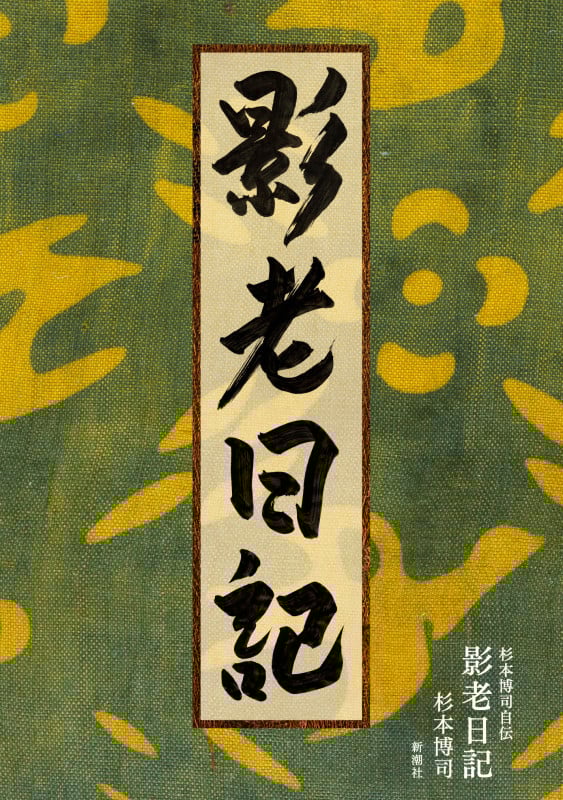 影老日記
杉本博司自伝
影老日記
杉本博司
新潮社